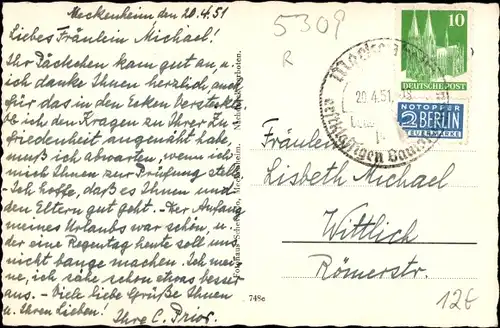 Meckenheim, den 20.4.51
Liebes Fräulein Michael!
Ihr Päckchen kam gut an, u.
ich danke Ihnen herzlich, auch
für das in den Ecken Versteckte.
ob ich den Kragen zu Ihrer Zu
friedenheit angenäht habe,
muß ich abwarten, wenn ich
mich Ihnen zur Prüfung stelle
- Ich hoffe, daß es Ihnen und
den Eltern gut geht. - Der Anfang
meines Urlaubs war schön, u.
der eine Regentag heute soll uns
nicht bange machen. Ich mei-
ne, ich sähe schon etwas besser
aus. - Viele liebe Grüße Ihnen
u. Ihren Lieben! Ihre C. Prior.
748e
5309
R
20.4.51
10
DEUTSCHE POST
NOTOPFER
2 BERLIN
STEUERMARKE
Fräulein
Lisbeth Michael
Wittlich
Römerstr.
12€